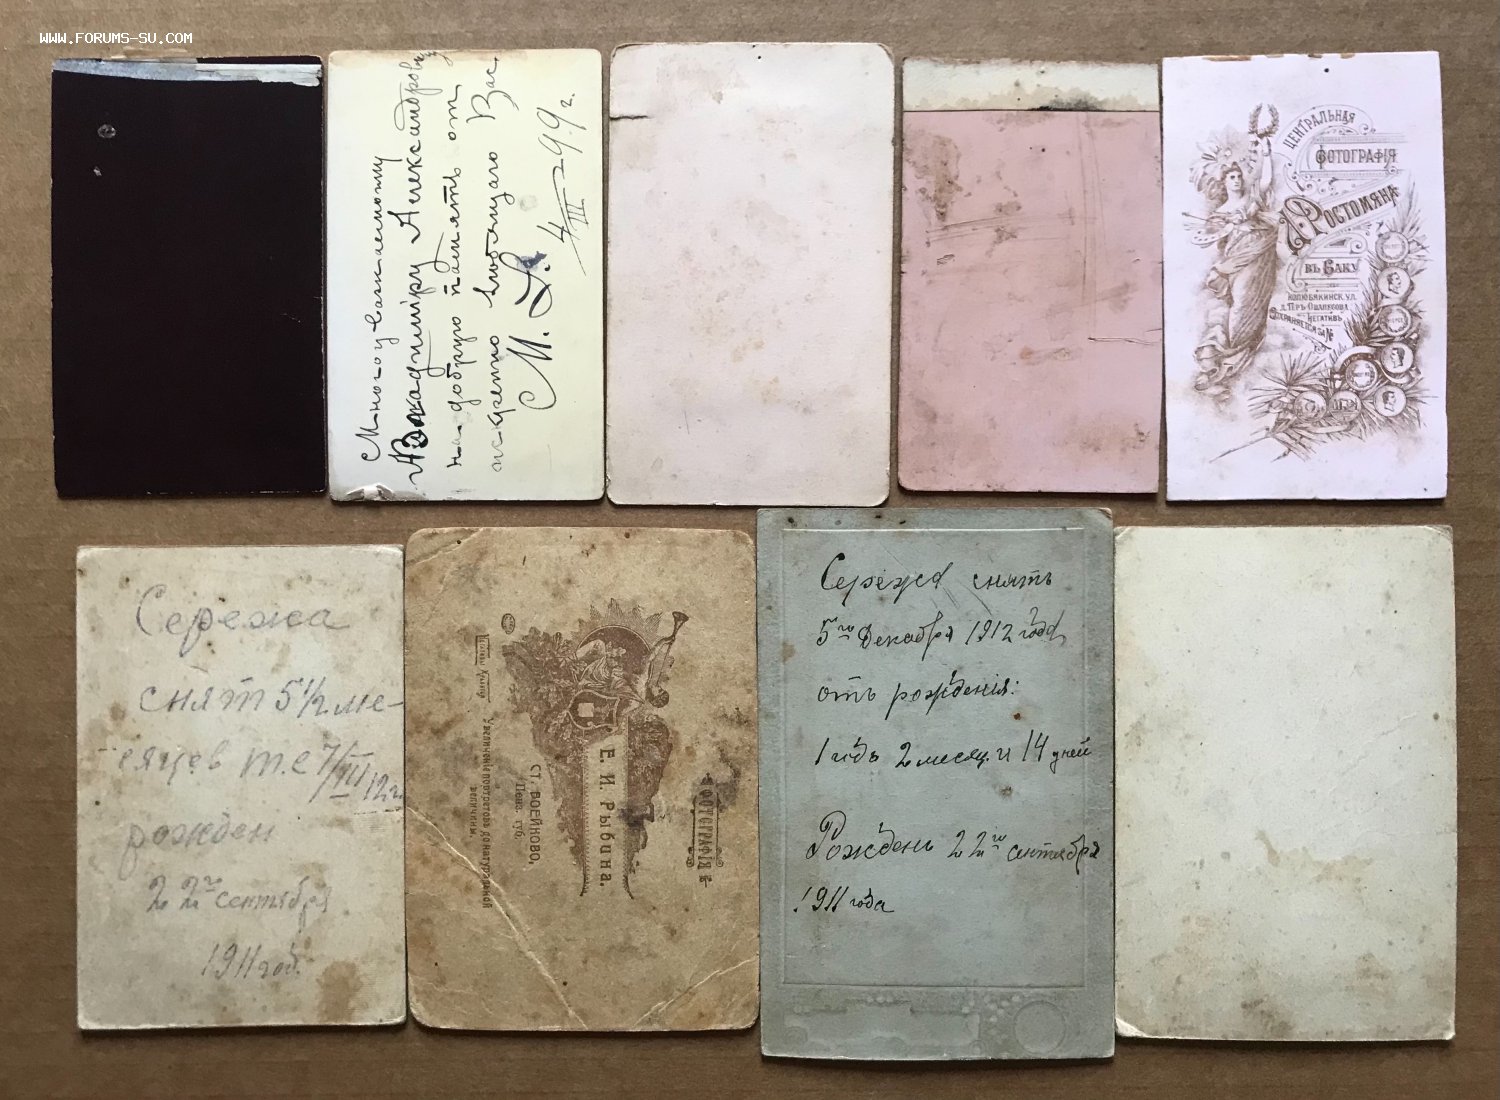 WWW.FORUMS-SU.COM
Многоуважаемому
Владиміру Александровичу
на добрую память от
искренно любящаго Вас
М. L.
4/III 99 г.
ЦЕНТРАЛЬНАЯ
ФОТОГРАФІЯ
А. РОСТОМЯНА
ВЪ БАКУ
КОЛЮБЯКИНСК. УЛ.
НЕГАТИВЪ
СОХРАНЯЕТСЯ ЗА №
Сережа
снят 5 1/2 ме-
сяцев т.е 7/III 12 г.
рожден
22го сентября
1911 год.
ФОТОГРАФІЯ
Е. И. Рыбина.
СТ. ВОЕЙКОВО,
Пенз. губ.
Увеличеніе портретовъ до натуральной
величины.
Сережа снятъ
5го декабря 1912 года
отъ рожденія:
1 годъ 2 месяц. и 14 дней
Рожденъ 22го сентября
1911 года